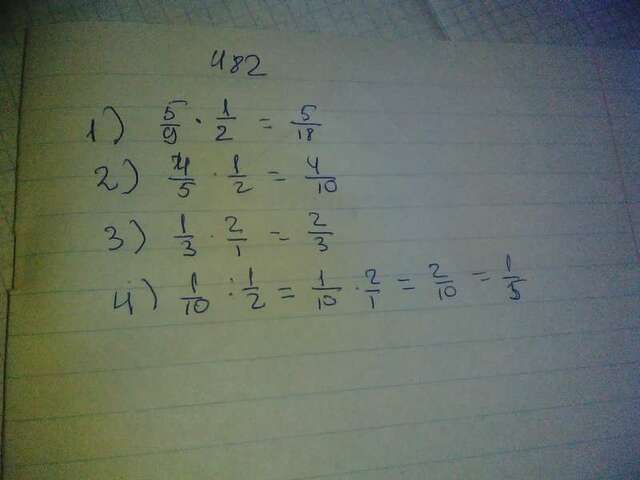 482
1) 5/9 · 1/2 = 5/18
2) 4/5 · 1/2 = 4/10
3) 1/3 · 2/1 = 2/3
4) 1/10 : 1/2 = 1/10 · 2/1 = 2/10 = 1/5